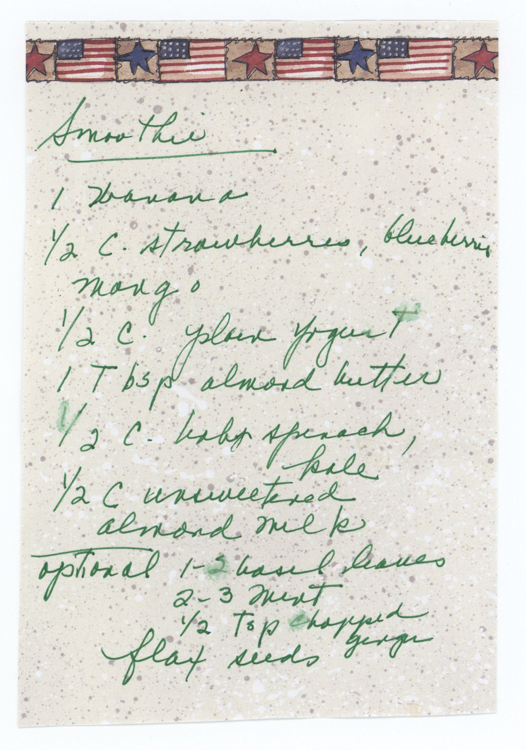 Smoothie
1 banana
1/2 C. strawberries, blueberries
mango
1/2 C. plain yogurt
1 Tbsp almond butter
1/2 C. baby spinach,
kale
1/2 C unsweetened
almond milk
optional 1-2 basil leaves
2-3 mint
1/2 Tsp chopped
ginger
flax seeds